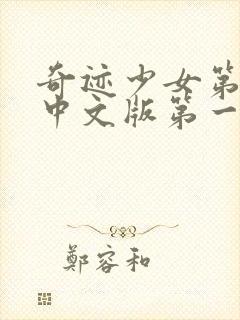 奇迹少女第
中文版第一
鄭容和